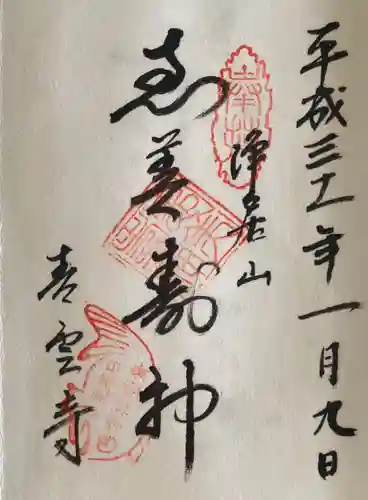 平成三十一年一月九日
奉拝
浄居山
恵美寿神
青雲寺